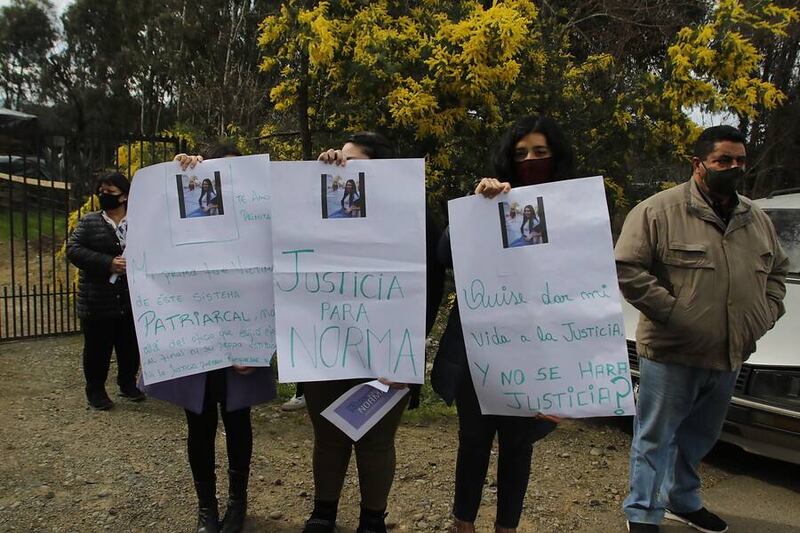 TE AMO
PRIMITA
MI PRIMA FUE VICTIMA
DE ESTE SISTEMA
PATRIARCAL, MAS
ALLÁ DEL
AL FINAL NI SU PROPIA
NI LA JUSTICIA
JUSTICIA
PARA
NORMA
NORMA
QUISE DAR MI
VIDA A LA JUSTICIA
Y NO SE HARA
JUSTICIA?